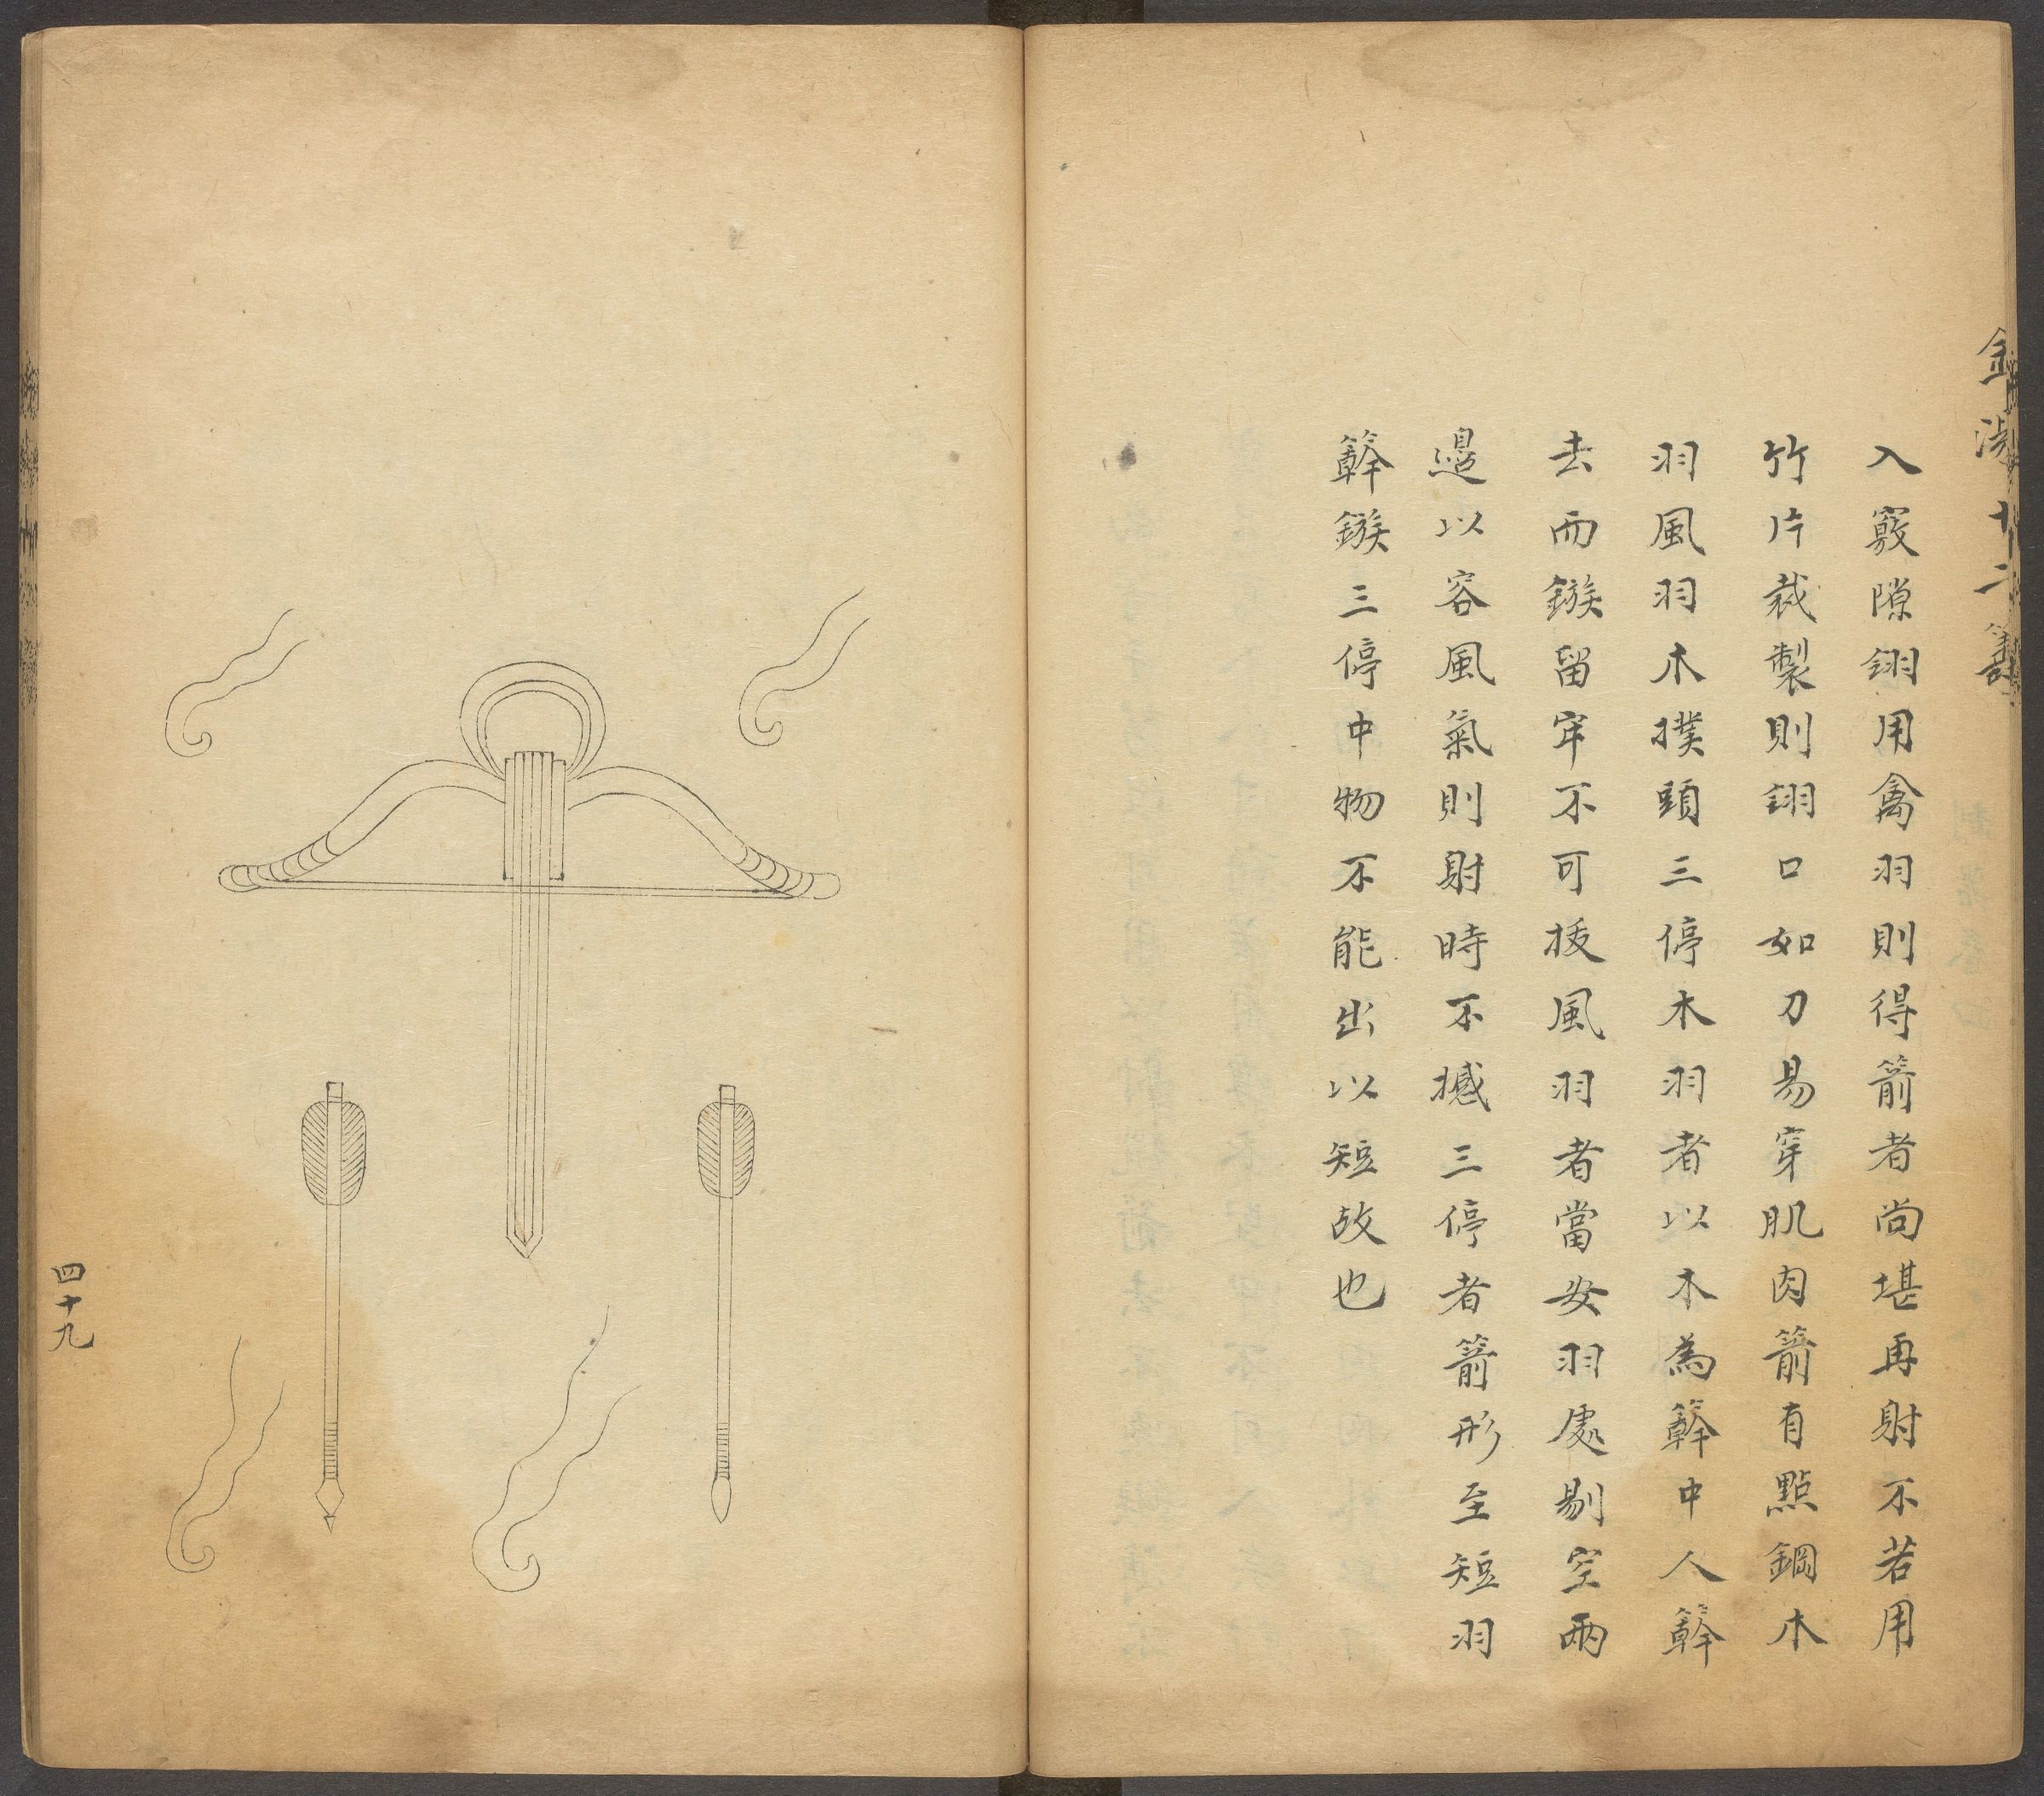 金湯十二籌
入竅隙翎用禽羽則得箭者尚堪再射不若用
竹片裁製則翎口如刀易穿肌肉箭有點鋼木
羽風羽木撲頭三停木羽者以木為簳中人簳
去而鏃留牢不可拔風羽者當安羽處剔空兩
邉以容風氣則射時不撼三停者箭形至短羽
簳鏃三停中物不能出以短故也
四十九